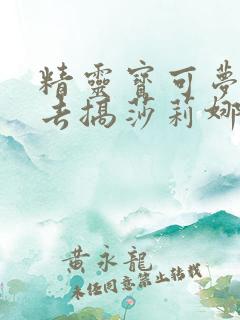 精靈寶可夢
去搞莎莉娜
黃永龍
未經同意禁止轉載